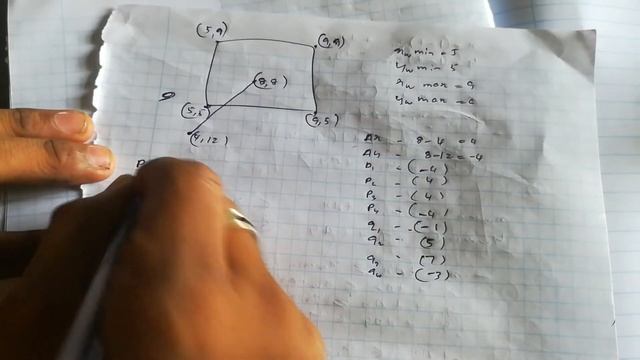 (5,9)
(9,9)
(8,8)
(5,5)
(9,5)
(4,12)
xw min = 5
yw min = 5
xw max = 9
yw max = 9
Δx = 8-4 = 4
Δy = 8-12 = -4
P1 = (-4)
P2 = (4)
P3 = (4)
P4 = (-4)
q1 = (-1)
q2 = (5)
q3 = (7)
q4 = (-3)